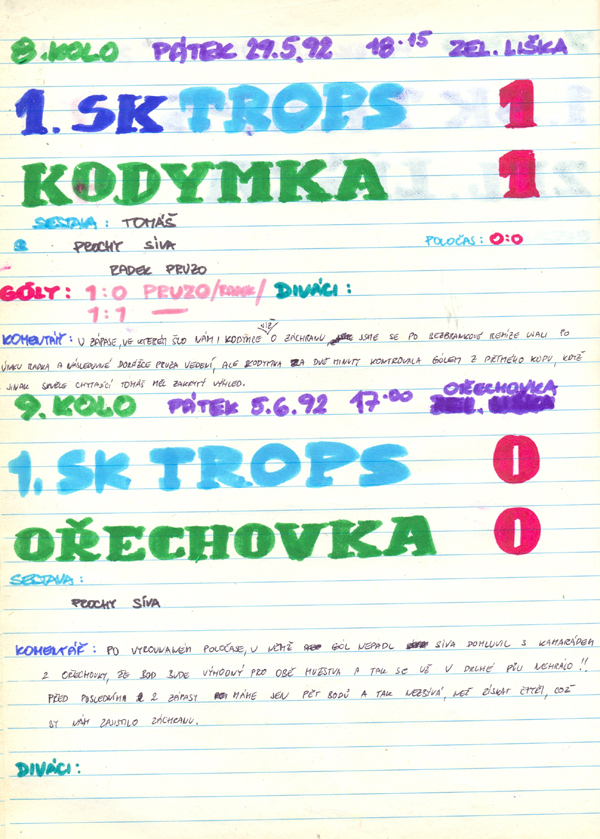 8. KOLO PÁTEK 29.5.92 18.15 ZEL. LIŠKA
1. SK TROPS 1
KODYMKA 1
SESTAVA: TOMÁŠ
PROCHY SÍVA POLOČAS: 0:0
RADEK PRUZO
GÓLY: 1:0 PRUZO/RADEK/ DIVÁCI:
1:1 —
VIZ
KOMENTÁŘ: V ZÁPASE, VE KTERÉM ŠLO NÁM I KODYMCE O ZÁCHRANU JSME SE PO BEZBRANKOVÉ REMÍZE UJALI PO
ÚNIKU RADKA A NÁSLEDOVNÉ DORÁŽCE PRUZA VEDENÍ, ALE KODYMKA ZA DVĚ MINUTY KONTROVALA GÓLEM Z PŘÍMÉHO KOPU, KDYŽ
JINAK SKVĚLE CHYTAJÍCÍ TOMÁŠ MĚL ZAKRYTÝ VÝHLED.
OŘECHOVKA
9. KOLO PÁTEK 5.6.92 17.00 ZEL. LIŠKA
1. SK TROPS 0
OŘECHOVKA 0
SESTAVA:
PROCHY SÍVA
KOMENTÁŘ: PO VYROVNANÉM POLOČASE, V NĚMŽ GÓL NEPADL SÍVA DOMLUVIL S KAMARÁDEM
Z OŘECHOVKY, ŽE BOD BUDE VÝHODNÝ PRO OBĚ MUŽSTVA A TAK SE UŽ V DRUHÉ PŮLI NEHRÁLO!!
PŘED POSLEDNÍMA 2 ZÁPASY MÁME JEN PĚT BODŮ A TAK NEZBÝVÁ, NEŽ ZÍSKAT ČTYŘI, COŽ
BY NÁM ZAJISTILO ZÁCHRANU.
DIVÁCI: